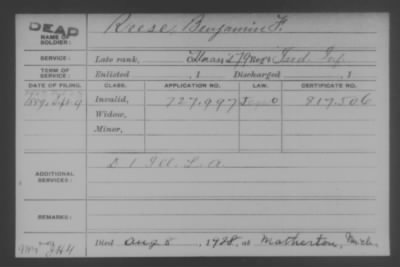 DEAD
NAME OF SOLDIER:
Reese, Benjamin F.
SERVICE:
Late rank, Ind. Inf.
TERM OF SERVICE:
Enlisted , 1 Discharged , 1
DATE OF FILING. CLASS. APPLICATION NO. LAW. CERTIFICATE NO.
1889, Sept. 9 Invalid, 727,997 817,506
Widow,
Minor,
ADDITIONAL SERVICES:
D 1 Ill. L. A.
REMARKS:
Died Aug 5, 1928, at Matherton, Mich.